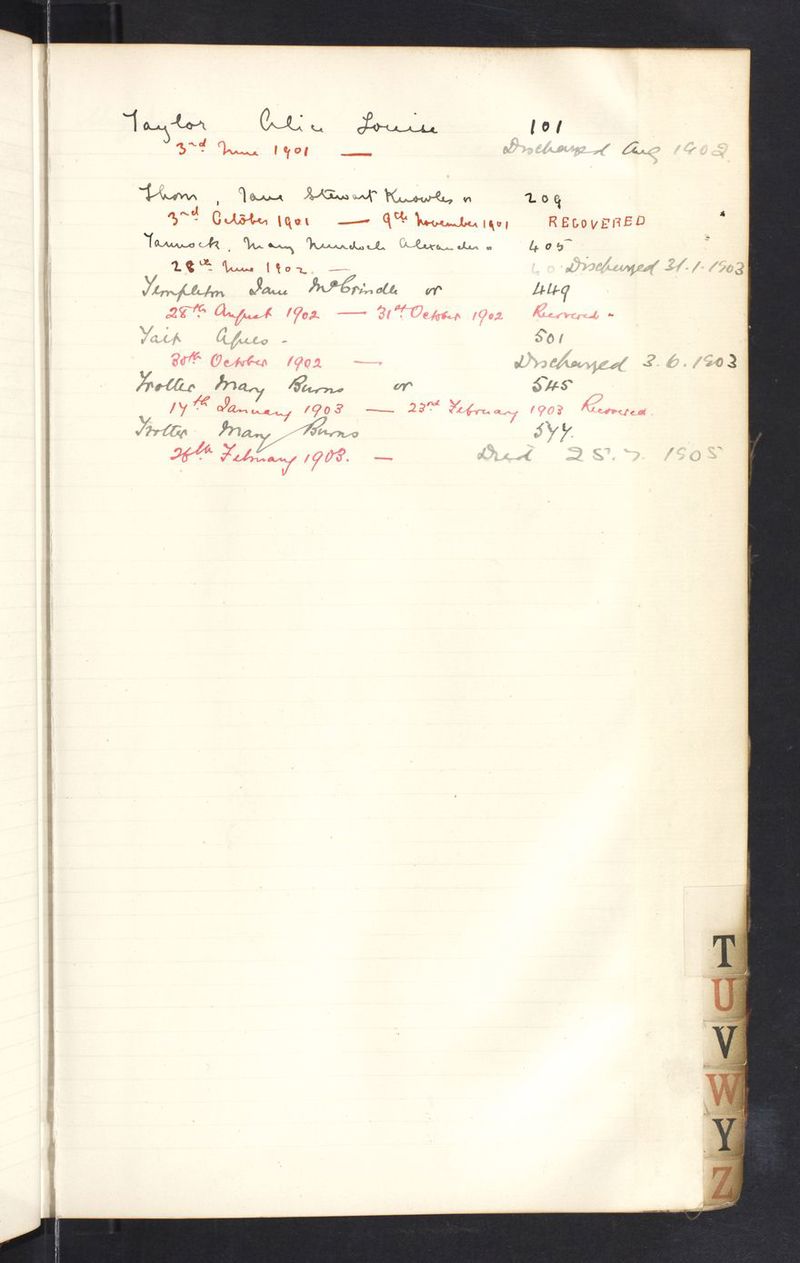 Taylor Alice Louise 101
3rd June 1901 — Discharged Aug 1902
Thom, Jane Stewart Knowles or 209
3rd October 1901 — 9th November 1901 RECOVERED
Tannock, Mary Murdoch Alexander 405
28th June 1902. — Discharged 31.1.1903
Templeton Jane McCrindle or 449
28th August 1902 — 31st October 1902 Recovered -
Tait Agnes - 501
30th October 1902 — Discharged 3.6.1903
Trotter Mary Burns or 545
17th January 1903 — 23rd February 1903 Recovered.
Trotter Mary Burns 577.
26th February 1903. — Died 25.7.1905
T
U
V
W
Y
Z